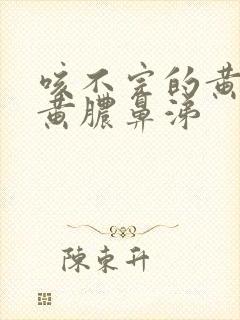 咳不完的黄
黄膿鼻涕
陳東升